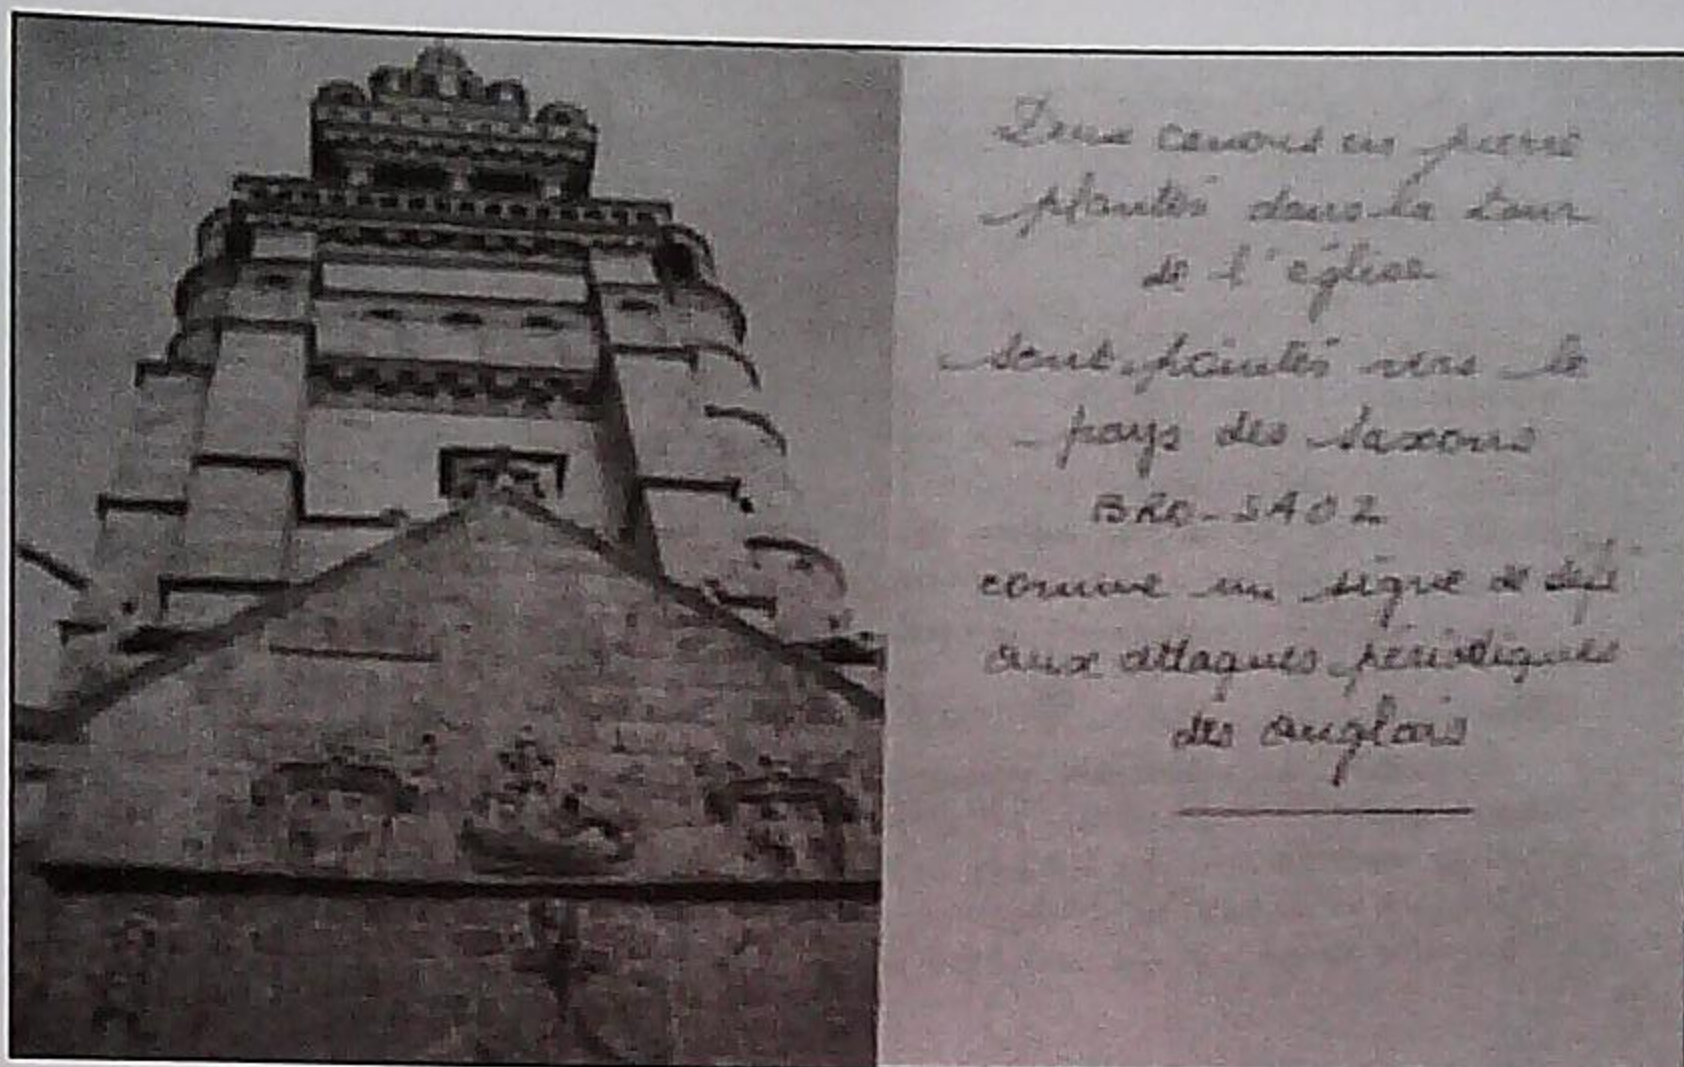 Deux canons en pierre
plantés dans la tour
de l'église
sont pointés vers le
pays des Saxons
BRO-SAOZ
comme un signe de défi
aux attaques périodiques
des anglais